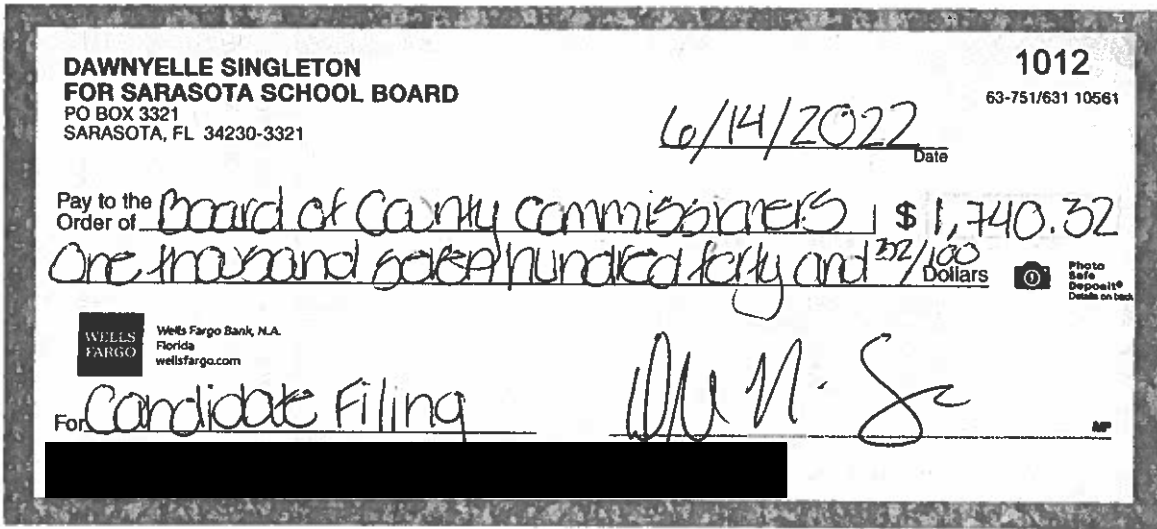 DAWNYELLE SINGLETON
FOR SARASOTA SCHOOL BOARD
PO BOX 3321
SARASOTA, FL 34230-3321
1012
63-751/631 10561
6/14/2022
Date
Pay to the
Order of Board of County Commissioners $ 1,740.32
One thousand seven hundred forty and 32/100 Dollars
Photo
Safe
Deposit®
Details on back
WELLS
FARGO
Wells Fargo Bank, N.A.
Florida
wellsfargo.com
For Candidate Filing
MP